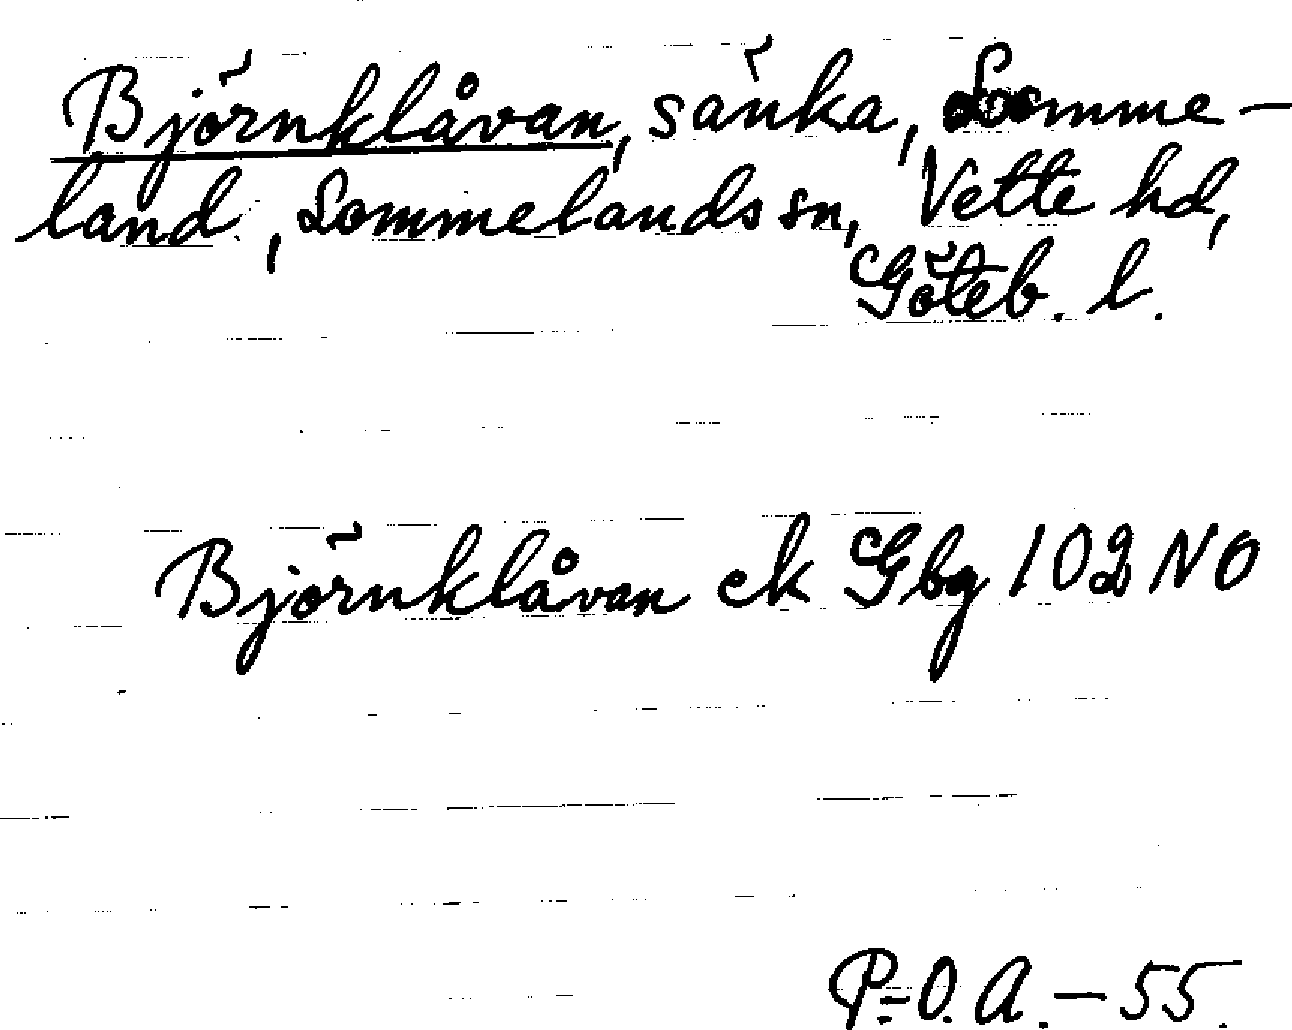 Björnklåvan, sänka, Lomme-
land, Lommelands sn, Vette hd,
Göteb. l.
Björnklåvan ek Gbg 102 NO
P.-O. A. - 55.